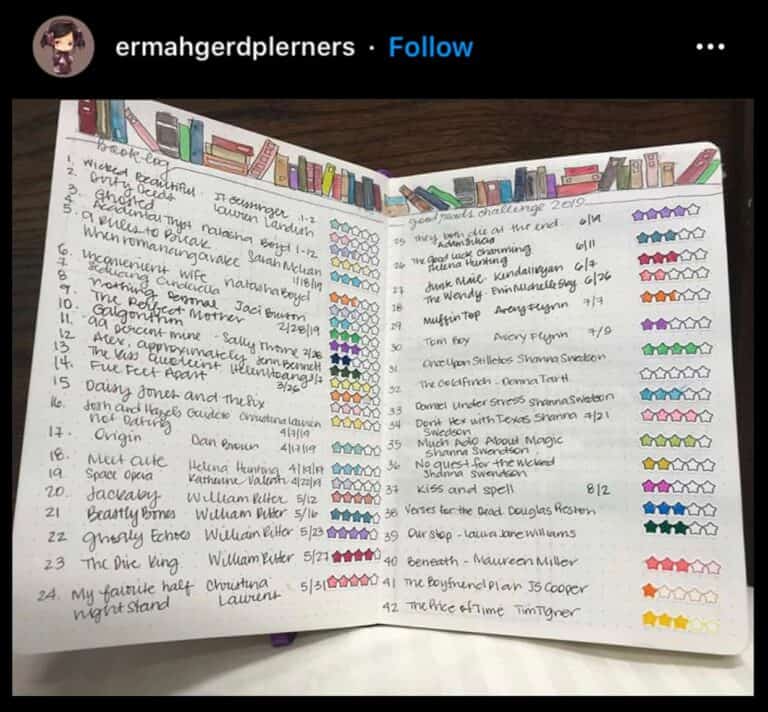 ermahgerdplerners · Follow
Book log
1. Wicked Beautiful - JT Geissinger 1-2
2. Dirty Deeds Lauren Landish
3. Ghosted
4. Accidental Tryst Natasha Boyd 1-12
5. 9 Rules to Break
When romancing a rake Sarah Mclean
6. Inconvenient Wife Natasha Boyd
7. 1/18/19
8 Seducing Cinderella
9. Nothing Personal Jaci Burton
10. The Perfect Mother
11. Galgorithm 2/28/19
12 99 percent mine - Sally Thorne 2/28
13. Alex, approximately Jenn Bennett
14. The Kiss Quotient Helen Hoang 3/2
Five Feet Apart 3/26
15 Daisy Jones and the Six
16. Josh and Hazels Guide to Christina Lauren
Not Dating 4/7/19
17. Origin Dan Brown 4/17/19
18. Meet Cute Helena Hunting 4/19/19
19. Space Opera Katherine Valente 4/20/19
20. Jackaby William Ritter 5/12
21 Beastly Bones William Ritter 5/16
22 Ghostly Echoes William Ritter 5/23
23 The Dire King William Ritter 5/27
24. My favorite half Christina 5/31
night Stand Laurent
good reads challenge 2019
25 They both die at the end. 6/4
Adam Silvera
26 The Good Luck Charming 6/11
Helena Hunting
27 Junk Male - Kendall Ryan 6/7
28 The Wendy - Erin Michelle Sky 6/26
29 Muffin Top Avery Flynn 7/7
30 Tom Boy Avery Flynn 7/9
31 Once Upon Stilletos Shanna Swedson
32 The Goldfinch - Donna Tartt
33 Damsel Under Stress Shanna Swedson
34 Dont Hex with Texas Shanna 7/21
Swedson
35 Much Ado About Magic
Shanna Swendson
36 No quest for the Wicked
Shanna Swendson
37 Kiss and spell 8/2
38 Verses for the Dead. Douglas Preston
39 Our Stop - Laura Jane Williams
40 Beneath - Maureen Miller
41 The Boyfriend Plan JS Cooper
42 The Price of Time Tim Tigner